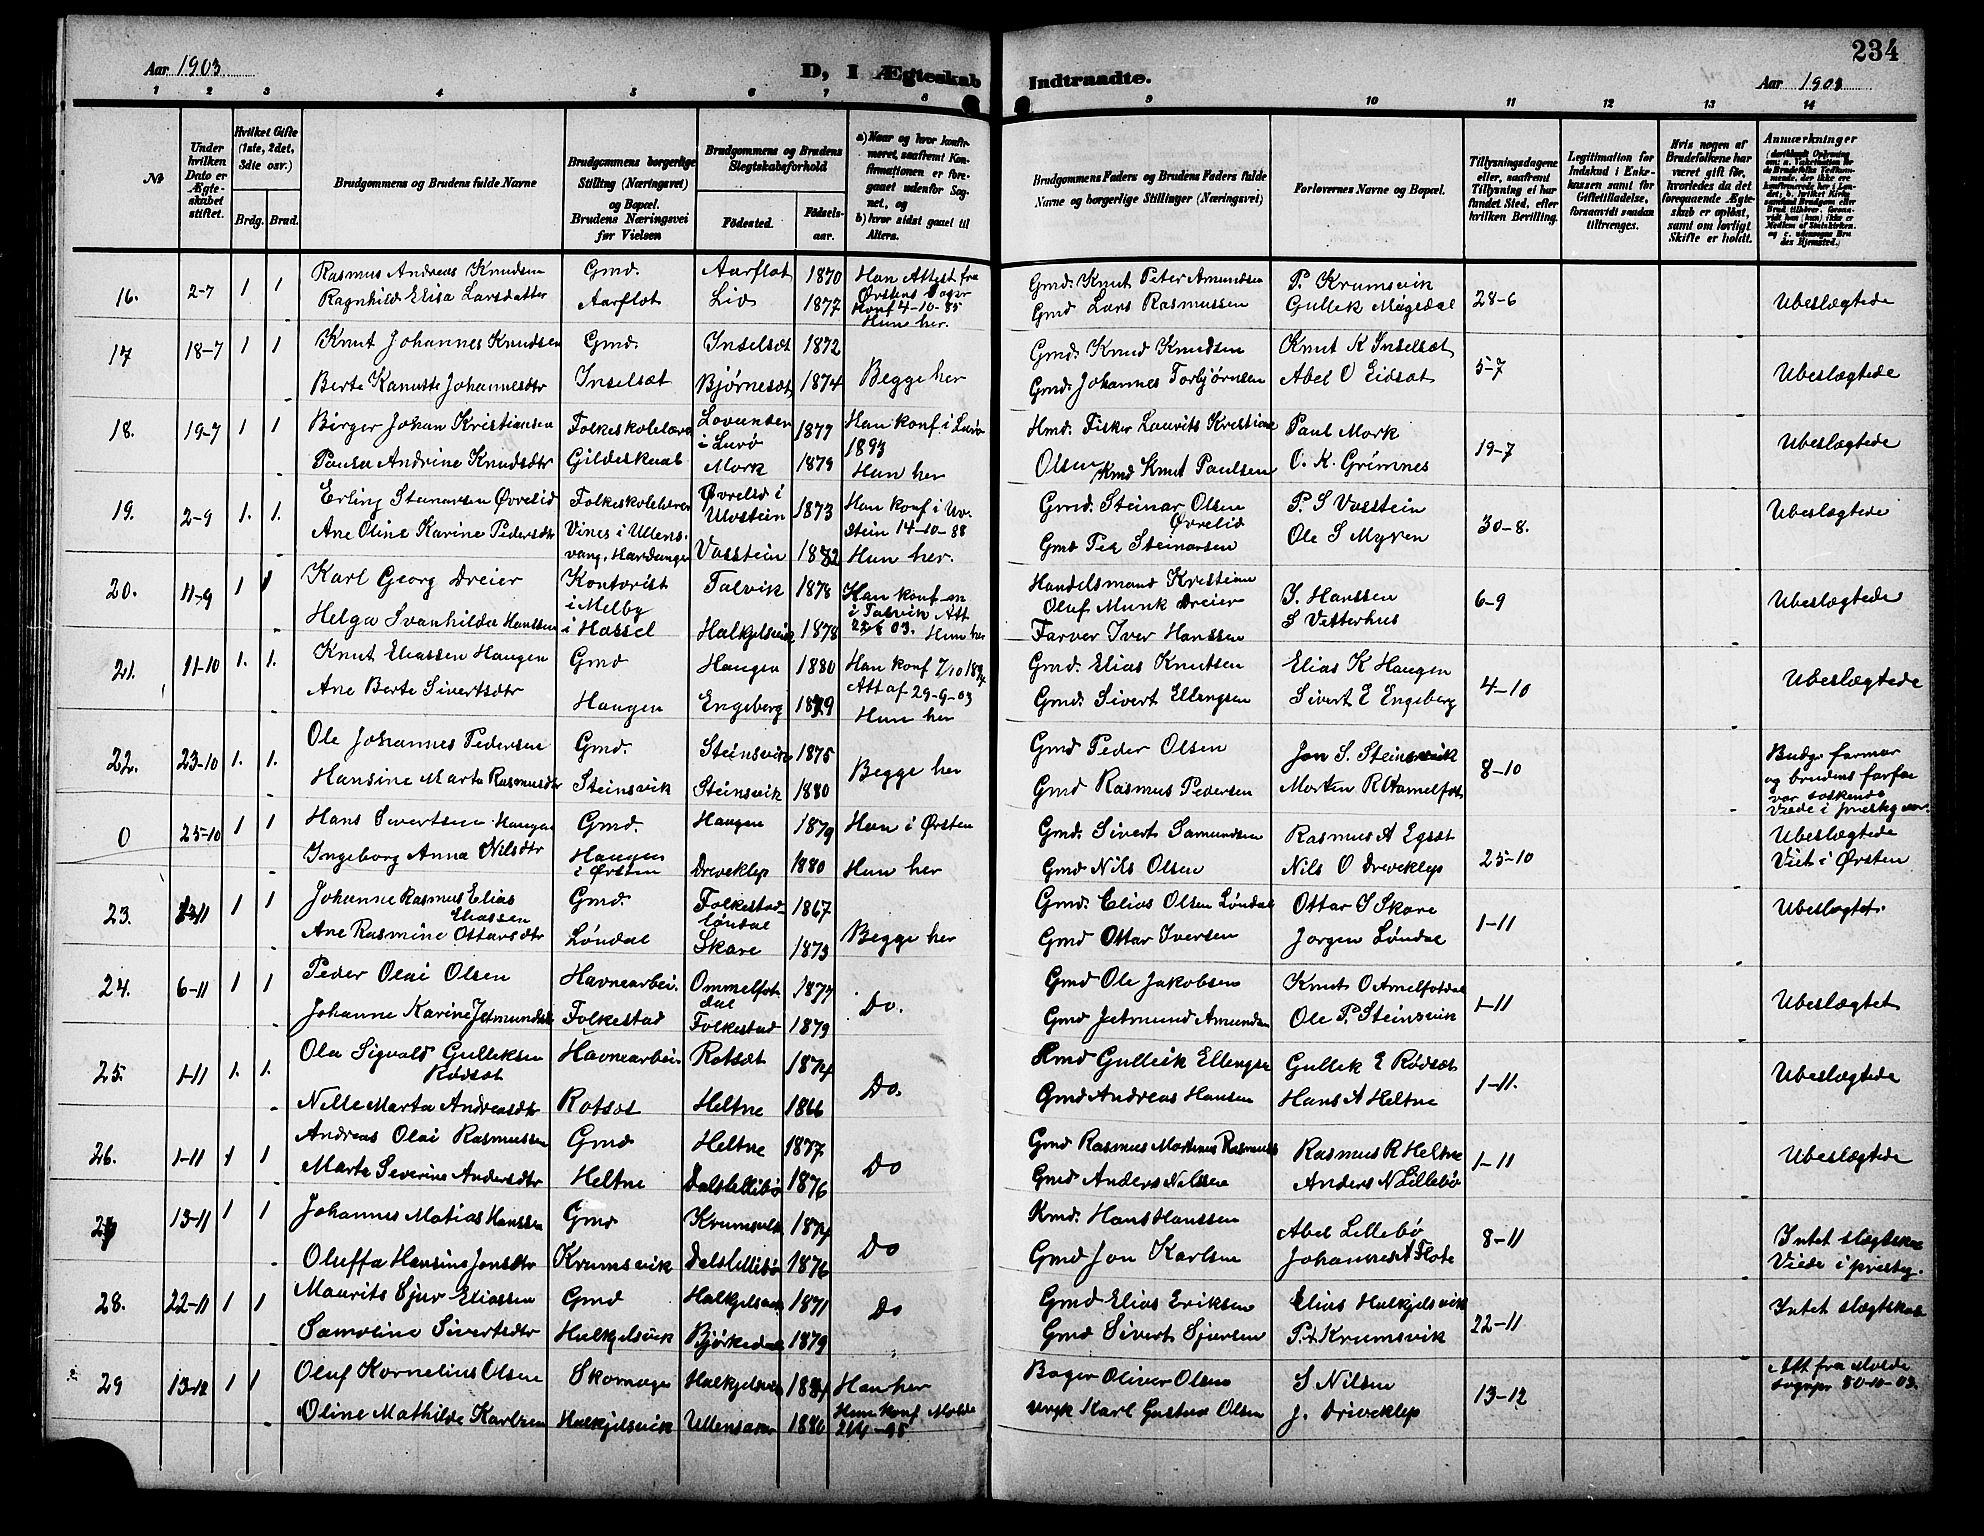 234
Aar 1903
D, I Ægteskab Indtraadte.
Aar 1903
1 2 3 4 5 6 7 8 9 10 11 12 13 14
№
Under hvilken Dato er Ægteskabet stiftet.
Hvilket Gifte (1ste, 2det, 3die osv.)
Brdg. Brud.
Brudgommens og Brudens fulde Navne
Brudgommens borgerlige Stilling (Næringsvei) og Bopæl. Brudens Næringsvei før Vielsen
Brudgommens og Brudens Slegtskabsforhold
Födested.
Födselsaar.
a) Naar og hvor konfirmeret, saafremt Konfirmationen er foregaaet udenfor Sognet, og
b) hvor sidst gaaet til Alters.
Brudgommens Faders og Brudens Faders fulde Navne og borgerlige Stillinger (Næringsvei)
Forlovernes Navne og Bopæl.
Tillysningsdagene eller, saafremt Tillysning ei har fundet Sted, efter hvilken Bevilling.
Legitimation for Indskud i Enkekassen samt for Giftetilladelse, forsaavidt saadan tiltrænges.
Hvis nogen af Brudefolkene har været gift før, hvorledes da det foregaaende Ægteskab er opløst, samt om lovligt Skifte er holdt.
Anmærkninger
16. 2-7 1 1 Rasmus Andreas Knudsen Gmd. Aarflot 1870 Han Attest fra Ørstens Sogn Gmd. Knut Peter Amundsen P. Krumsvik 28-6 Ubeslægtede
Ragnhild Elisa Larsdatter Aarflot Liv 1877 konf 4-10-85 Hun her. Gmd Lars Rasmussen Gullek Mögedal
17 18-7 1 1 Knut Johannes Knudsen Gmd. Inselset 1872 Begge her Gmd. Knud Knudsen Knut K Inselset 5-7 Ubeslægtede
Berte Kanutte Johannesdtr Inselset Bjørneset 1874 Gmd. Johannes Torbjørnsen Abel O Eidset
18. 19-7 1 1 Birger Johan Kristiansen Folkeskolelærer Lovunden i Lurø 1877 Han konf i Lurø 1893 Hmd. Fisker Laurits Kristian Paul Mork 19-7 Ubeslægtede
Paula Andrine Knudsdtr Gildeskaal Mork 1879 Hun her Olsen Kmd Knut Paulsen O. K. Grimnes
19. 2-9 1. 1. Erling Steinarsen Øvrelid Folkeskolelærer Øvrelid i Ulvstein 1873 Han konf i Ulvstein 14-10-88 Gmd. Steinar Olsen Øvrelid P. S Vasstein 30-8. Ubeslægtede
Ane Oline Karine Pedersdtr Vines i Ullensvang, Hardanger Vasstein 1882 Hun her. Gmd Per Steinarsen Ole S Myren
20. 11-9 1 1 Karl Georg Dreier Kontorist i Melby Talvik 1878 Han konf i Talvik Att Handelsmand Kristian Oluf Munk Dreier S. Hanssen 6-9 Ubeslægtede
Helga Svanhilda Hanssen i Hassel Halkjelsvik 1878 Hun her Farver Iver Hanssen S Vesterhus
21. 11-10 1. 1. Knut Eliassen Haugen Gmd Haugen 1880 Han konf 7/10 1894 Gmd. Elias Knutsen Elias K Haugen 4-10 Ubeslægtede
Ane Berte Sivertsdtr Haugen Engeberg 1879 Att af 29-9-03 Hun her Gmd. Sivert Ellingsen Sivert E Engeberg
22. 23-10 1. 1. Ole Johannes Pedersen Gmd. Steinsvik 1875 Begge her Gmd Peder Olsen Jon S. Steinsvik 8-10 Budg. farmor og brudens farfar var søskende
Hansine Marta Rasmusdtr Steinsvik Steinsvik 1880 Gmd Rasmus Pedersen Morten R Hamelfot Viede i presteg.
0 25-10 1 1 Hans Sivertsen Haugen Gmd. Haugen 1879 Han i Ørsten Gmd. Sivert Samundsen Rasmus A Egset 25-10 Ubeslægtede
Ingeborg Anna Nilsdtr Haugen i Ørsten Driveklep 1880 Hun her Gmd Nils Olsen Nils O Driveklep Viet i Ørsten
23. 1 1 Johannes Rasmus Elias Eliassen Gmd. Folkestad Løndal 1867 Begge her Gmd. Elias Olsen Løndal Ottar S Skare 1-11 Ubeslægtet.
Ane Rasmine Ottarsdtr Løndal Skare 1873 Gmd Ottar Iversen Jorgen Løndal
24. 6-11 1 1 Peder Olai Olsen Havnearbei. Ommelfotdal 1877 Do. Gmd Ole Jakobsen Knut O Amelfotdal 1-11 Ubeslægtet
Johanne Karine Jetmundsdtr Folkestad Folkestad 1879 Gmd Jetmund Amundsen Ole P. Steinsvik
25. 1-11 1. 1. Ola Sigvald Gulleksen Rødset Havnearbei. Rotset 1874 Do. Kmd Gulleik Ellingsen Gullek E Rødset 1-11. Ubeslægtede
Nille Marta Andreasdtr Rotset Heltne 1866 Gmd Andreas Hansen Hans A Heltne
26. 1-11 1 1 Andreas Olai Rasmussen Gmd Heltne 1877 Do Gmd Rasmus Martinus Rasmuss Rasmus R Heltne 1-11 Ubeslægtede
Marta Severine Andersdtr Heltne Dalslillibø 1876 Gmd Anders Nilssen Anders N Lillebø
27 13-11 1 1 Johannes Matias Hanssen Gmd Krumsvik 1874 Do Kmd. Hans Hanssen Abel Lillebø 8-11 Intet slægtskab
Oluffa Hansine Jonsdtr Krumsvik Dalslillibø 1876 Gmd Jon Karlsen Johannes A Flote Viede i presteg.
28. 22-11 1 1 Maurits Sjur Eliassen Gmd Halkjelsvik 1871 Do Gmd Elias Eriksen Elias Halkjelsvik 22-11 Intet slægtskab
Samoline Sivertsdtr Halkjelsvik Bjørkedal 1879 Gmd Sivert Sjursen P. Krumsvik
29 13-12 1 1 Oluf Kornelius Olsen Skomager Halkjelsvik 1881 Han her Bager Oliver Olsen S Nilsen 13-12 Att fra Molde sognepr 30-10-03.
Oline Mathilde Karlsen Halkjelsvik Ullensaker 1880 Hun konf Molde Karl Gustav Olsen J. Driveklep